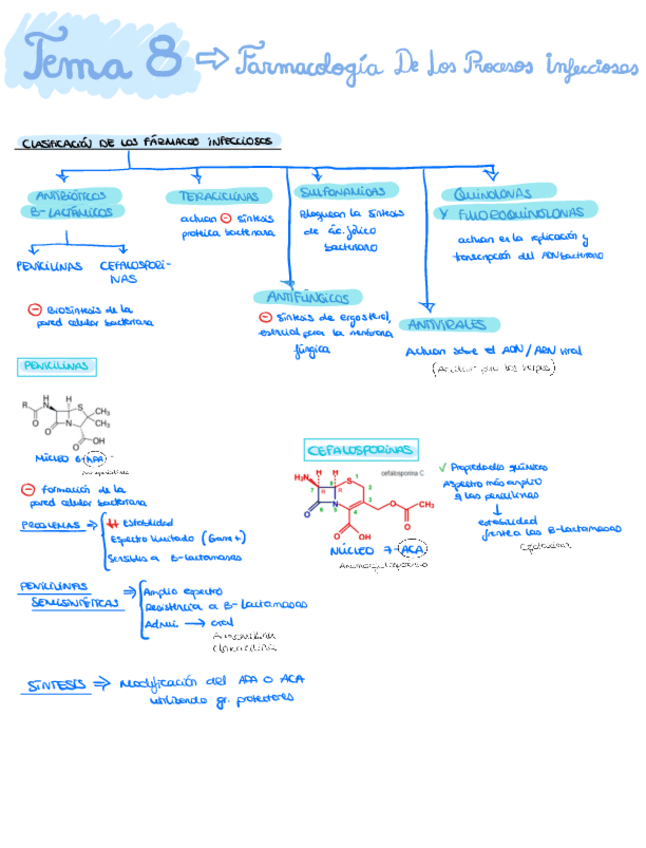 Tema 8 ⇒ Farmacología De Los Procesos Infecciosos
CLASIFICACIÓN DE LOS FÁRMACOS INFECCIOSOS
ANTIBIÓTICOS
B-LACTÁMICOS
PENICILINAS
CEFALOSPORI-
NAS
⊖ Biosíntesis de la
pared celular bacteriana
TETRACICLINAS
actúan ⊖ síntesis
proteica bacteriana
SULFONAMIDAS
Bloquean la síntesis
de ác. fólico
bacteriano
QUINOLONAS
Y FLUOROQUINOLONAS
actúan en la replicación y
transcripción del ADN bacteriano
ANTIFÚNGICOS
⊖ síntesis de ergosterol,
esencial para la membrana
fúngica
ANTIVIRALES
Actúan sobre el ADN / ARN viral
PENICILINAS
R
H
N
H
S
CH3
CH3
O
O
N
O
OH
NÚCLEO 6-APA
⊖ Formación de la
pared celular bacteriana
PROBLEMAS ⇒
↓↓ Estabilidad
Espectro limitado (Gram +)
Sensibles a B-lactamasas
PENICILINAS
SEMISINTÉTICAS ⇒
Amplio espectro
Resistencia a B-lactamasas
Admi. → oral
Amoxicilina
Cloxacilina
SÍNTESIS ⇒ Modificación del APA O ACA
utilizando gr. protectores
CEFALOSPORINAS
cefalosporina C
H3N
H
H
S
1
2
3
4
5
6
7
8
R
R
O
N
O
OH
O
O
CH3
NÚCLEO 7-ACA
√ Propiedades químicas
Espectro más amplio
q las penicilinas
↓
estabilidad
frente a las B-lactamasas